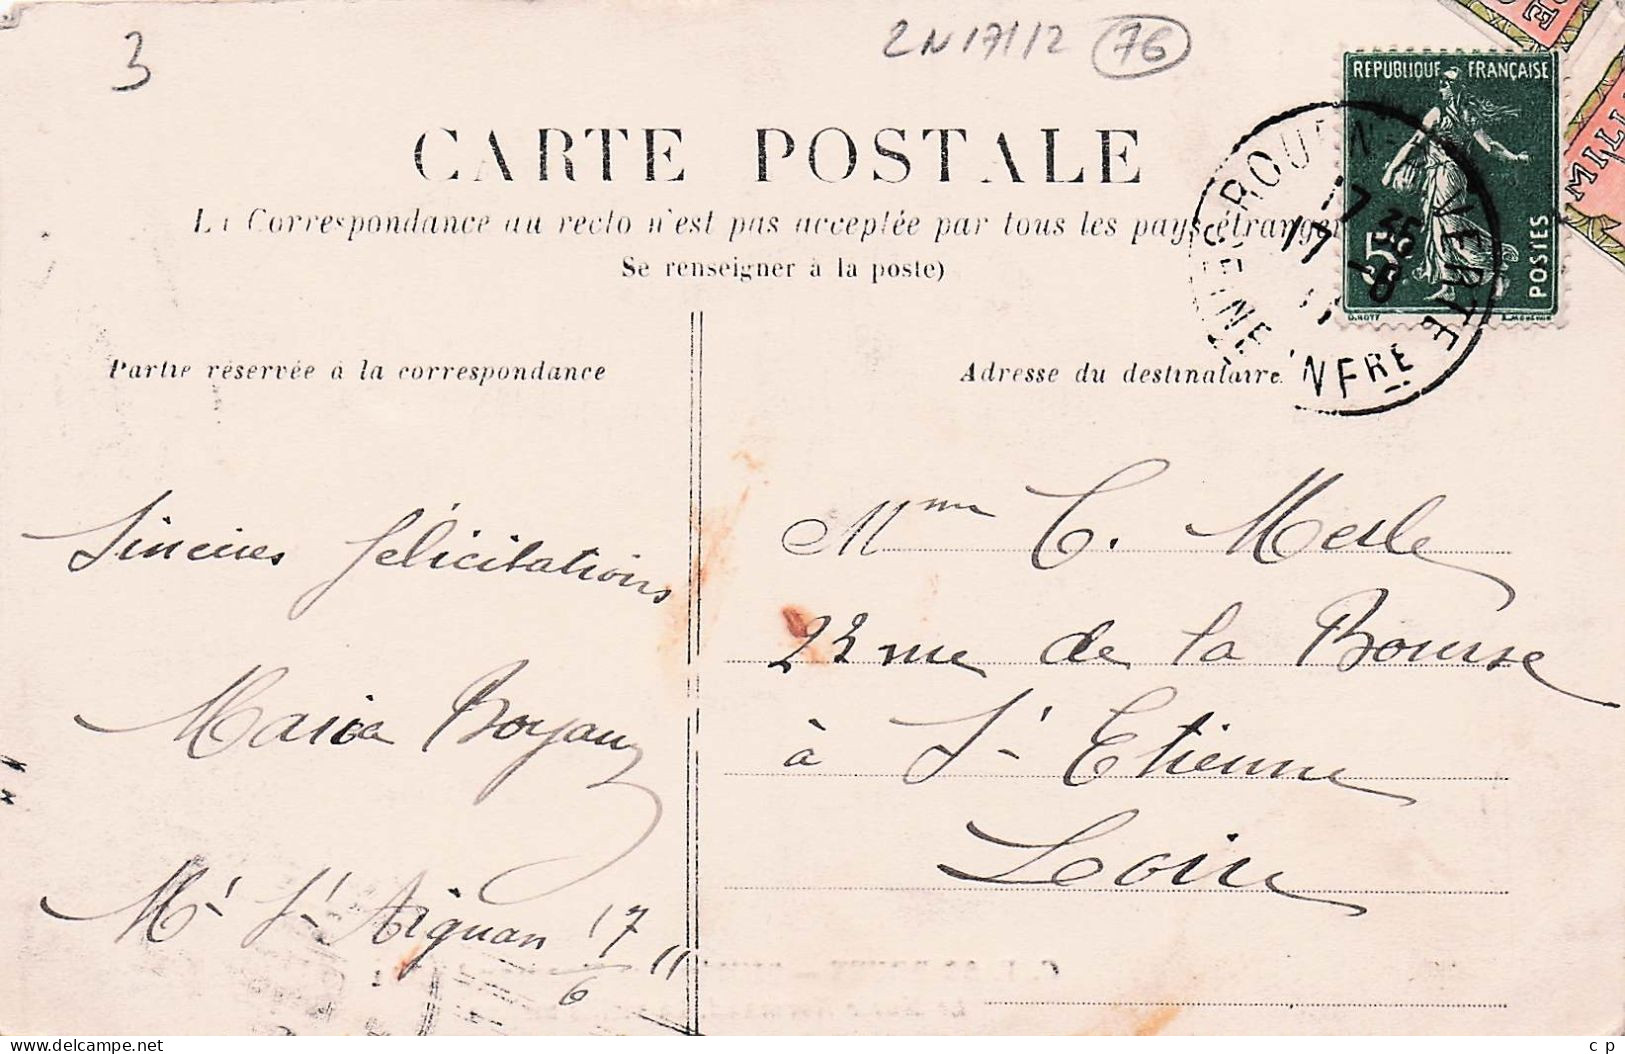 3
2N17/12 (76)
CE
MILLI
REPUBLIQUE FRANÇAISE
5c
POSTES
ROUEN
VERTE
SEINE INFRE
17 35
17 -6
11
CARTE POSTALE
La Correspondance au recto n'est pas acceptée par tous les pays étranger
Se renseigner à la poste)
Partie réservée à la correspondance
Adresse du destinataire
Sincères félicitations
Maria Boyaux
Mt St Aignan 17/6 11
Mme C. Merle
23 rue de la Bourse
à St Etienne
Loire
c p